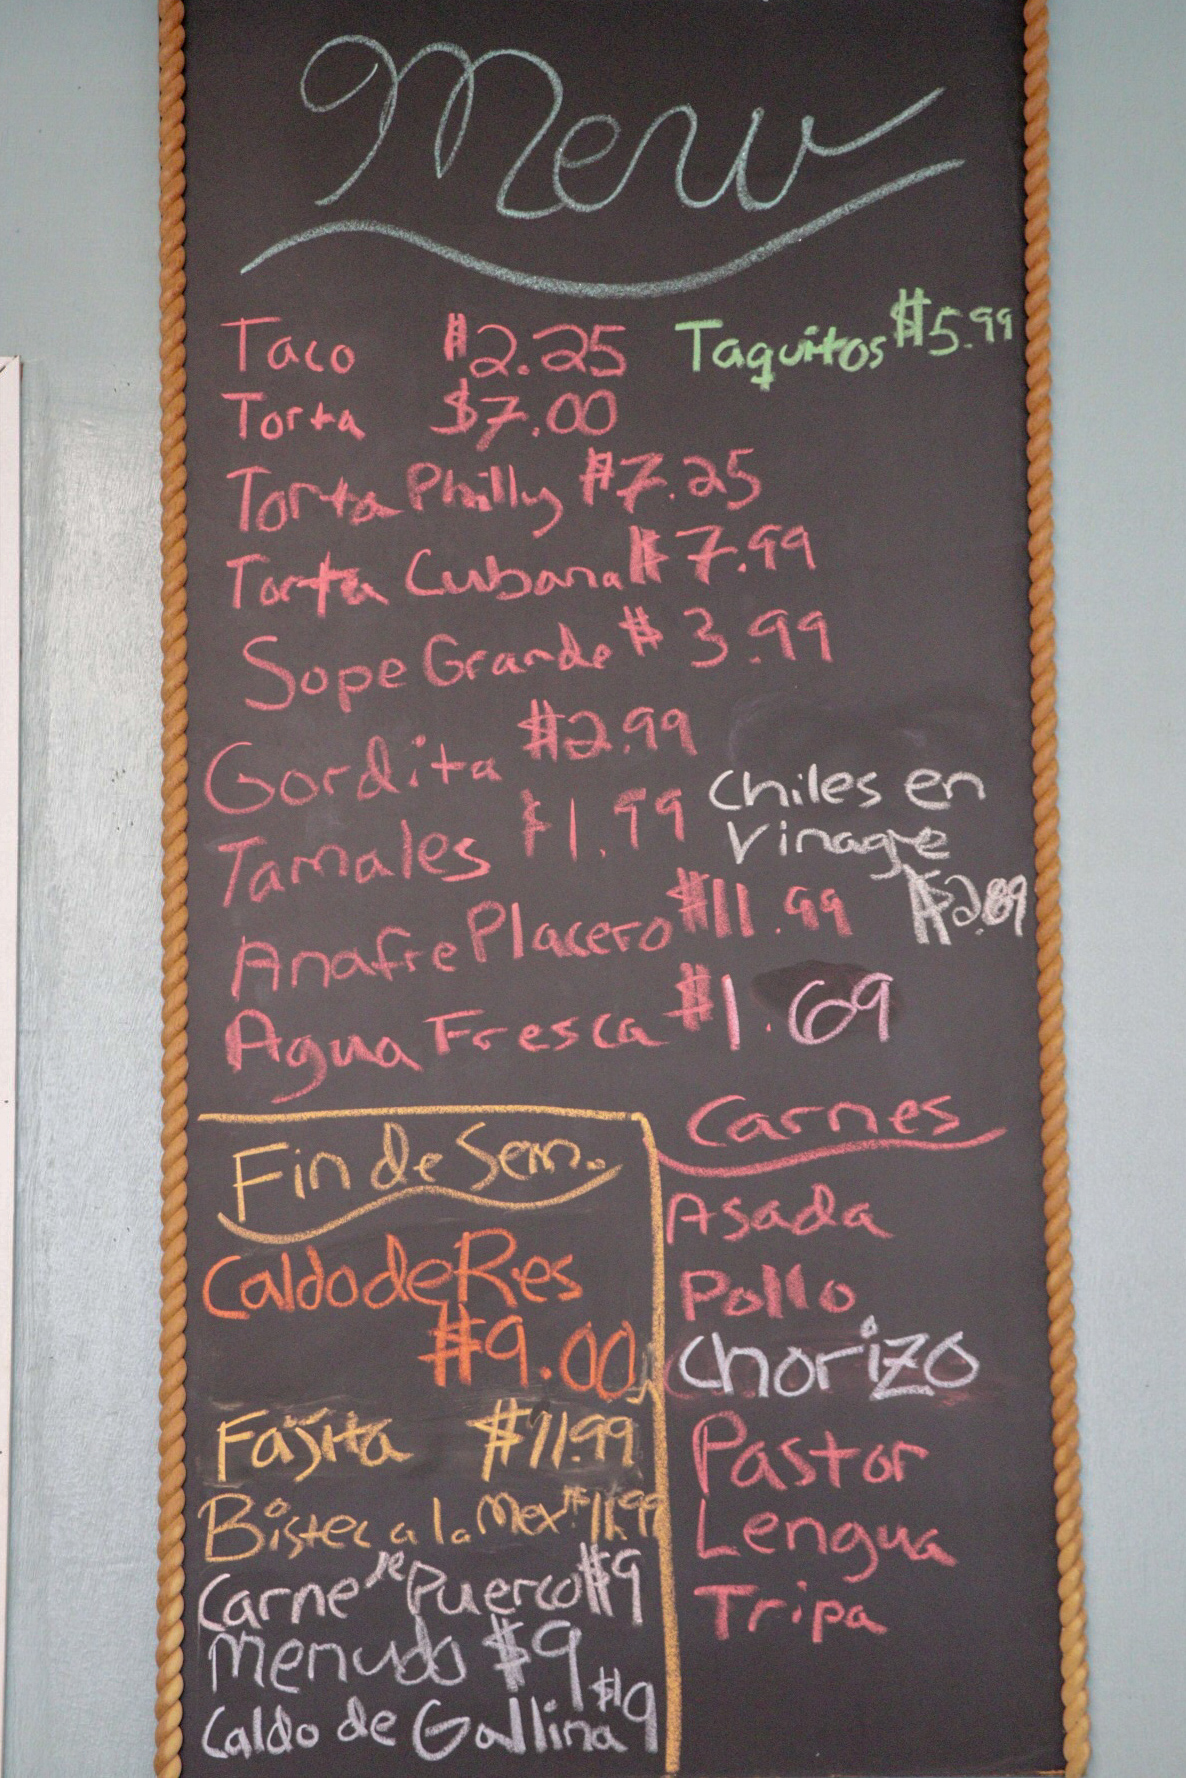 Menu
Taco $2.25 Taquitos $5.99
Torta $7.00
Torta Philly $7.25
Torta Cubana $7.99
Sope Grande $3.99
Gordita $2.99
Tamales $1.99
Chiles en
Vinagre
$2.89
Anafre Placero $11.99
Agua Fresca $1.69
Fin de Sem.
Caldo de Res
$9.00
Fajita $11.99
Bistec a la Mex. $11.99
Carne de Puerco $9
Menudo $9
Caldo de Gallina $9
Carnes
Asada
Pollo
Chorizo
Pastor
Lengua
Tripa